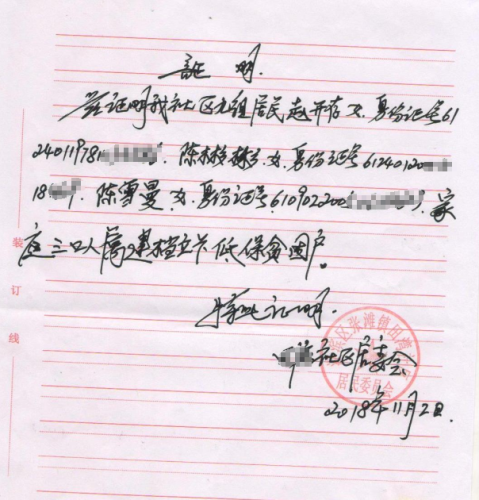 証 明.
兹证明我社区九组居民赵开存 女.身份证号61
24011978 陈 女.身份证号6124012000
18 陈雪曼.女.身份证号.610902200 家
庭三口人属建档立卡低保贫困户。
特此证明.
社区居委会
2018年11月2日.
区张滩镇田
居民委员会
装订线